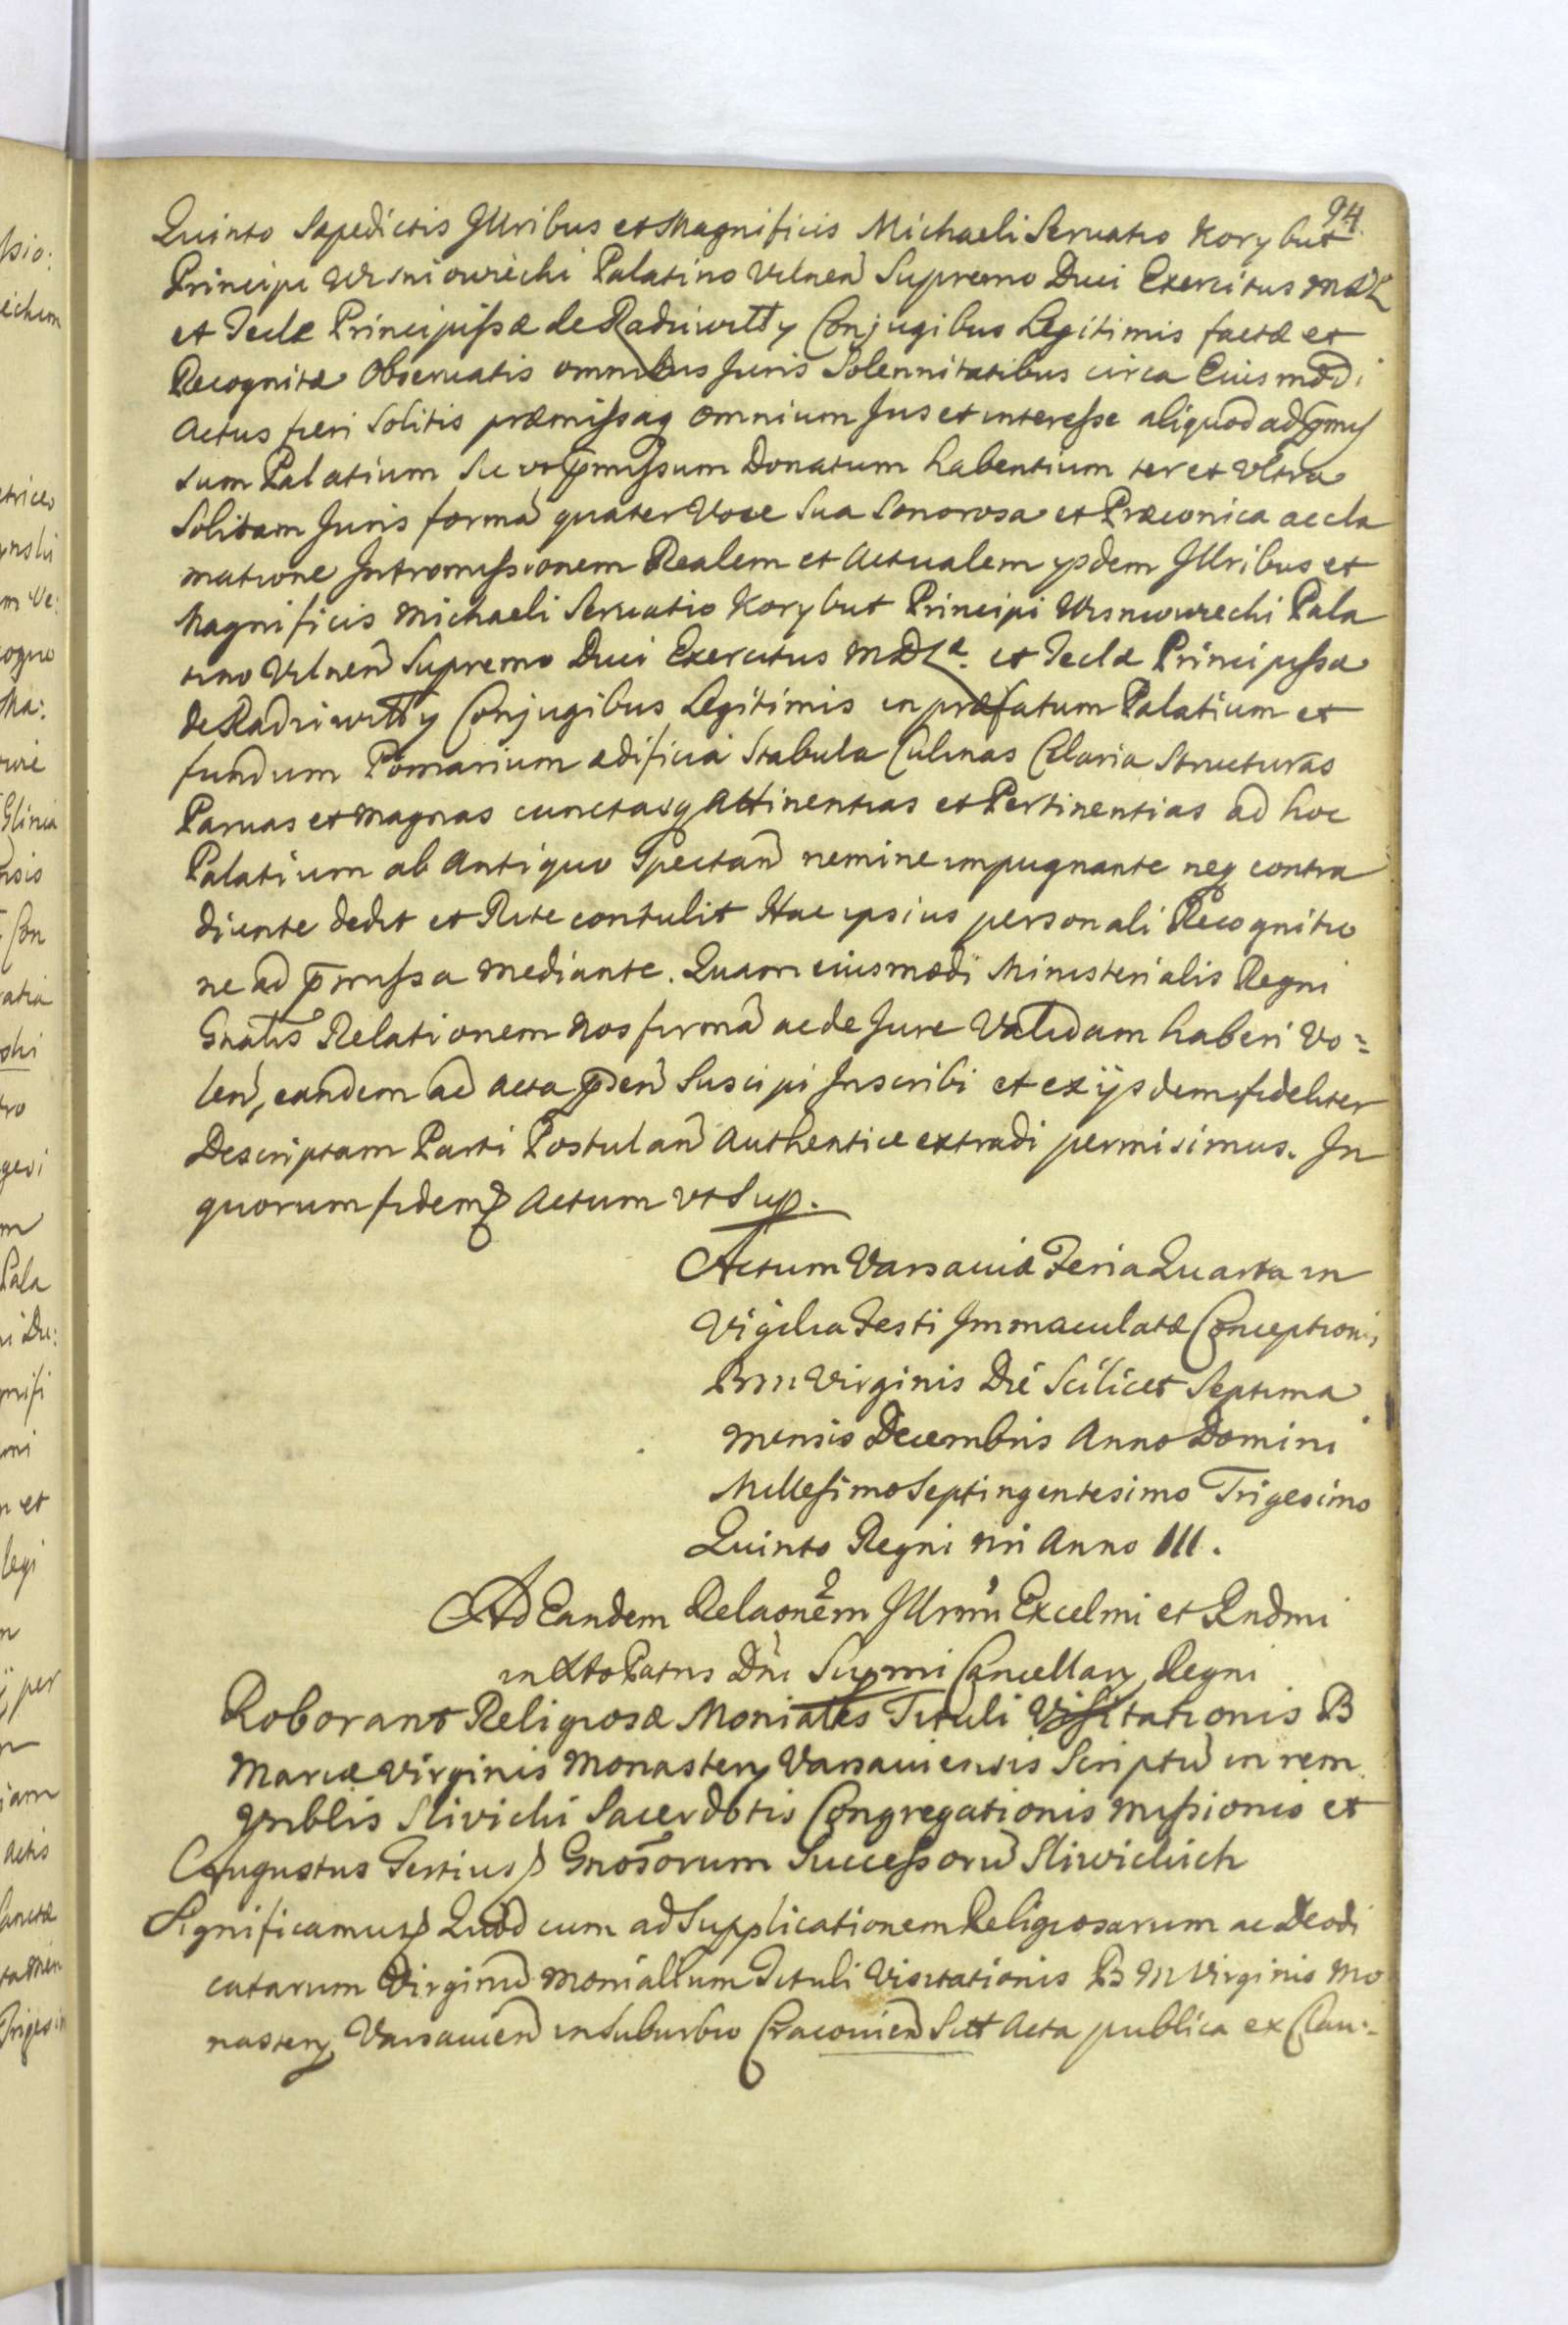 94.
Quinto Sæpedictis Jllribus et Magnificis Michaeli Servatio Korybut
Principi Wisniowiecki Palatino Vilneñ Supremo Duci Exercitus MDL
et Teclæ Principissæ de Radziwiłły Conjugibus Legitimis factæ et
Recognitæ Observatis omnibus Juris Solennitatibus circa Eiusmodi
Actus fieri Solitis præmissaq omnium Jus et interesse aliquod ad pmis
sum Palatium Sic ut pmissum Donatum habentium ter et Ultra
Solitam Juris formã quater Voce Sua Sonorosa et Præconica accla
matione Intromissionem Realem et Actualem ijsdem Jllribus et
Magnificis Michaeli Servatio Korybut Principi Wisniowiecki Pala
tino Vilneñ Supremo Duci Exercitus MDLæ. et Teclæ Principissæ
de Radziwiłły Conjugibus Legitimis in præfatum Palatium et
fundum Pomarium ædificia Stabula Culinas Cellaria Structuras
Parvas et Magnas cunctasq Attinentias et Pertinentias ad hoc
Palatium ab Antiquo Spectañ nemine impugnante neq contra
dicente dedit et Rite contulit Hac ipsius personali Recognitio
ne ad pmissa mediante. Quam eiusmodi Ministerialis Regni
Gnalis Relationem Nos firmã ac de Jure Validam haberi Vo=
leñ, eandem ad Acta pseñ Suscipi Inscribi et ex ijsdem fideliter
Descriptam Parti Postulañ Authentice extradi permisimus. In
quorum fidem Actum ut Sup.
Actum Varsaviæ Feria Quarta in
Vigilia Festi Immaculatæ Conceptionis
BM Virginis Die Scilicet Septima
Mensis Decembris Anno Domini
Millesimo Septingentesimo Trigesimo
Quinto Regni nri Anno III.
Ad Eandem Relaonem Jllrmi Excelmi et Rndmi
in Xto Patris Dñi Supmi Cancellarij Regni
Roborant Religiosæ Moniales Tituli Visitationis B
Mariæ Virginis Monasterij Varsaviensis Scriptũ in rem
Sliwicki Sacerdotis Congregationis Missionis et
Augustus Tertius Gnosorum Successorũ Sliwickich
Significamus Quod cum ad Supplicationem Religiosarum ac Deodi
catarum Virginũ Monialium Tituli Visitationis B M Virginis Mo
nasterij Varsavieñ in Suburbio Cracovieñ Sitt Acta publica ex Clau=